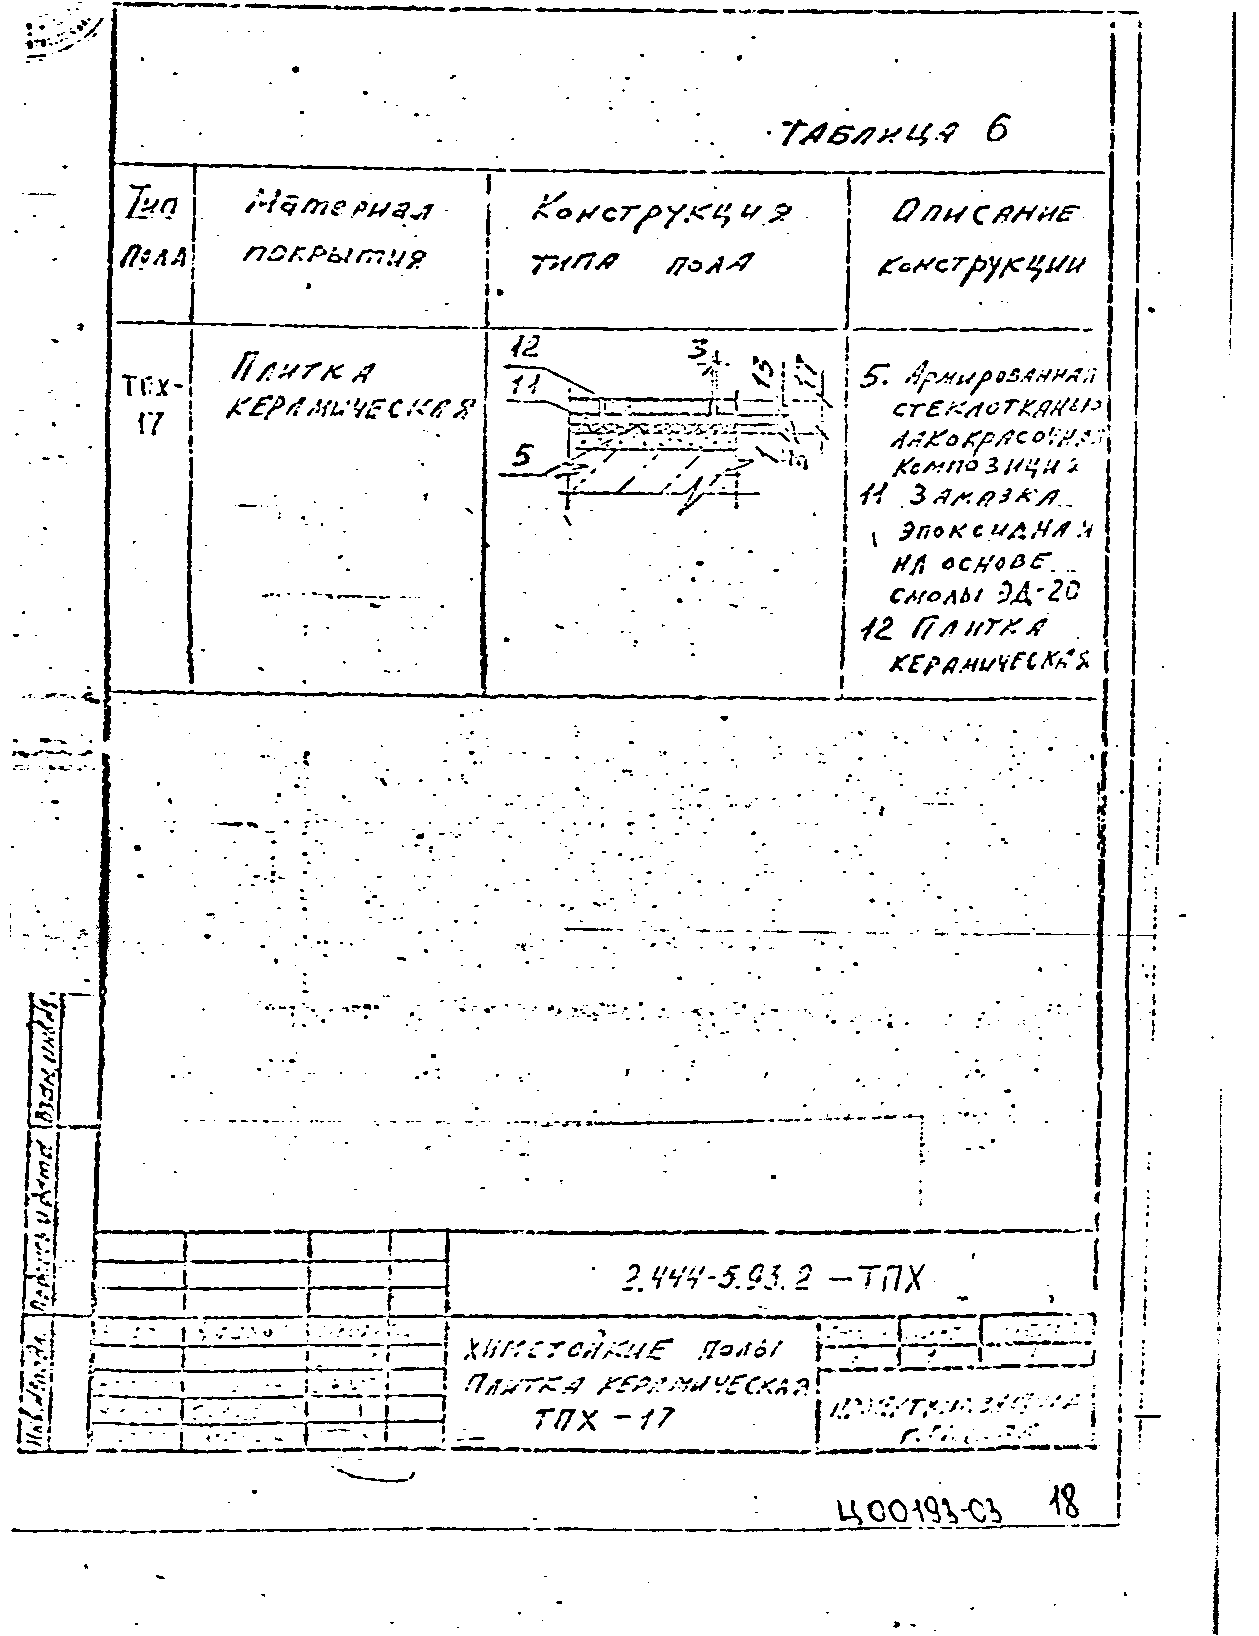 ТАБЛИЦА 6
Тип пола
Материал покрытия
Конструкция типа пола
Описание конструкции
ТПХ-17
Плитка
керамическая
12
11
5
3
13
17
5. Армированная
стеклотканью
лакокрасочная
композиция
11 Замазка
эпоксидная
на основе
смолы ЭД-20
12 Плитка
керамическая
Инв.№ подл.
Подпись и дата
Взам. инв.№
2.444-5.93.2 -ТПХ
Химстойкие полы
Плитка керамическая
ТПХ-17
Ц00193-03 18